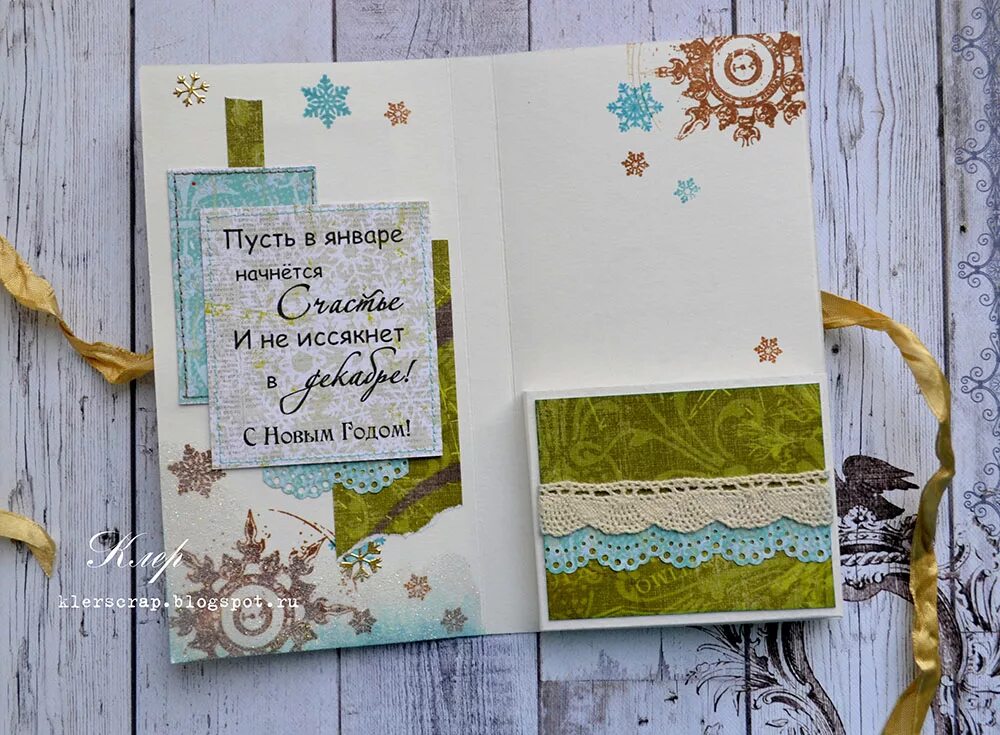 Пусть в январе
начнётся
Счастье
И не иссякнет
в декабре!
С Новым Годом!
Клер
klerscrap.blogspot.ru